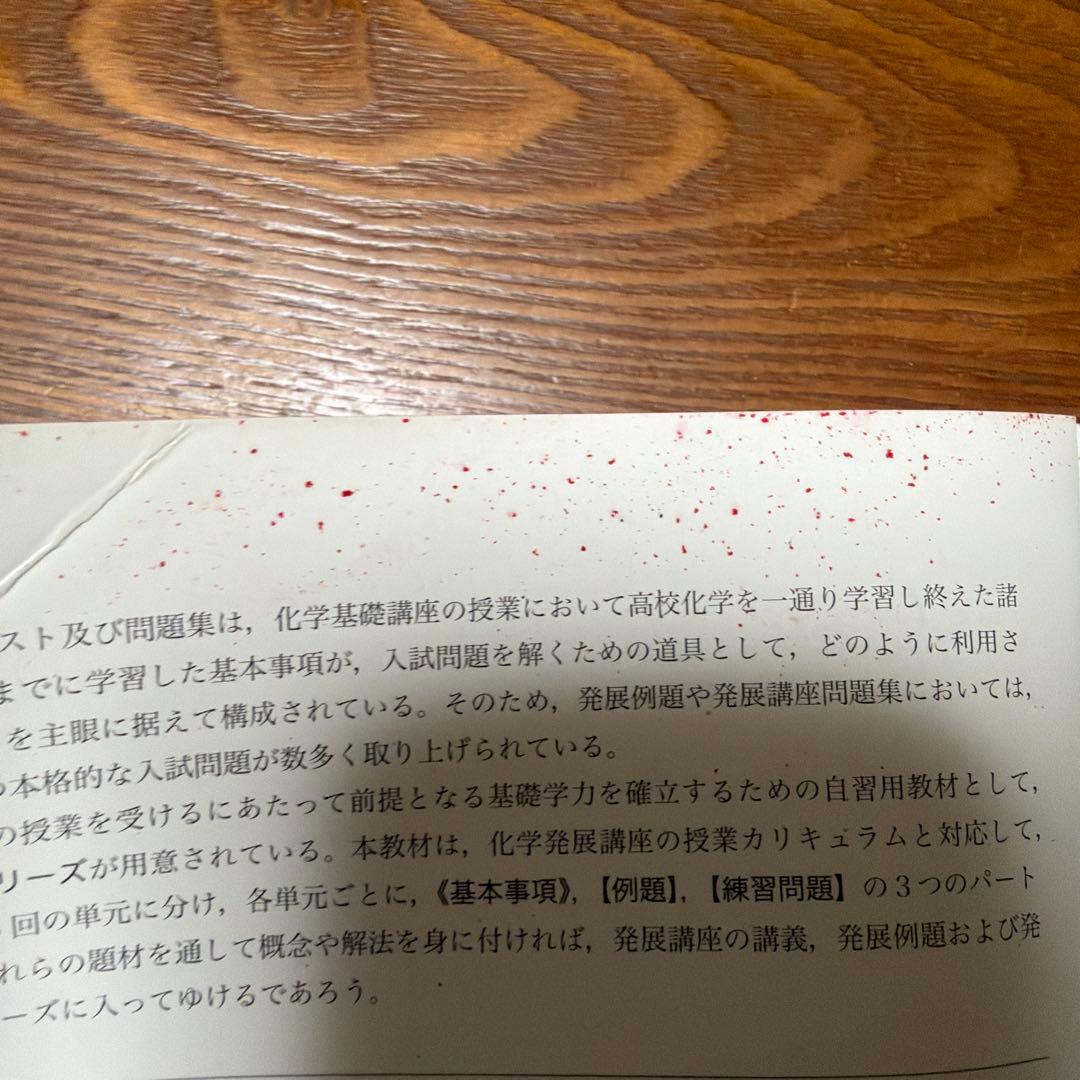 スト及び問題集は，化学基礎講座の授業において高校化学を一通り学習し終えた諸
までに学習した基本事項が，入試問題を解くための道具として，どのように利用さ
を主眼に据えて構成されている。そのため，発展例題や発展講座問題集においては，
本格的な入試問題が数多く取り上げられている。
の授業を受けるにあたって前提となる基礎学力を確立するための自習用教材として，
リーズが用意されている。本教材は，化学発展講座の授業カリキュラムと対応して，
回の単元に分け，各単元ごとに，《基本事項》，【例題】，【練習問題】の３つのパート
れらの題材を通して概念や解法を身に付ければ，発展講座の講義，発展例題および発
ーズに入ってゆけるであろう。